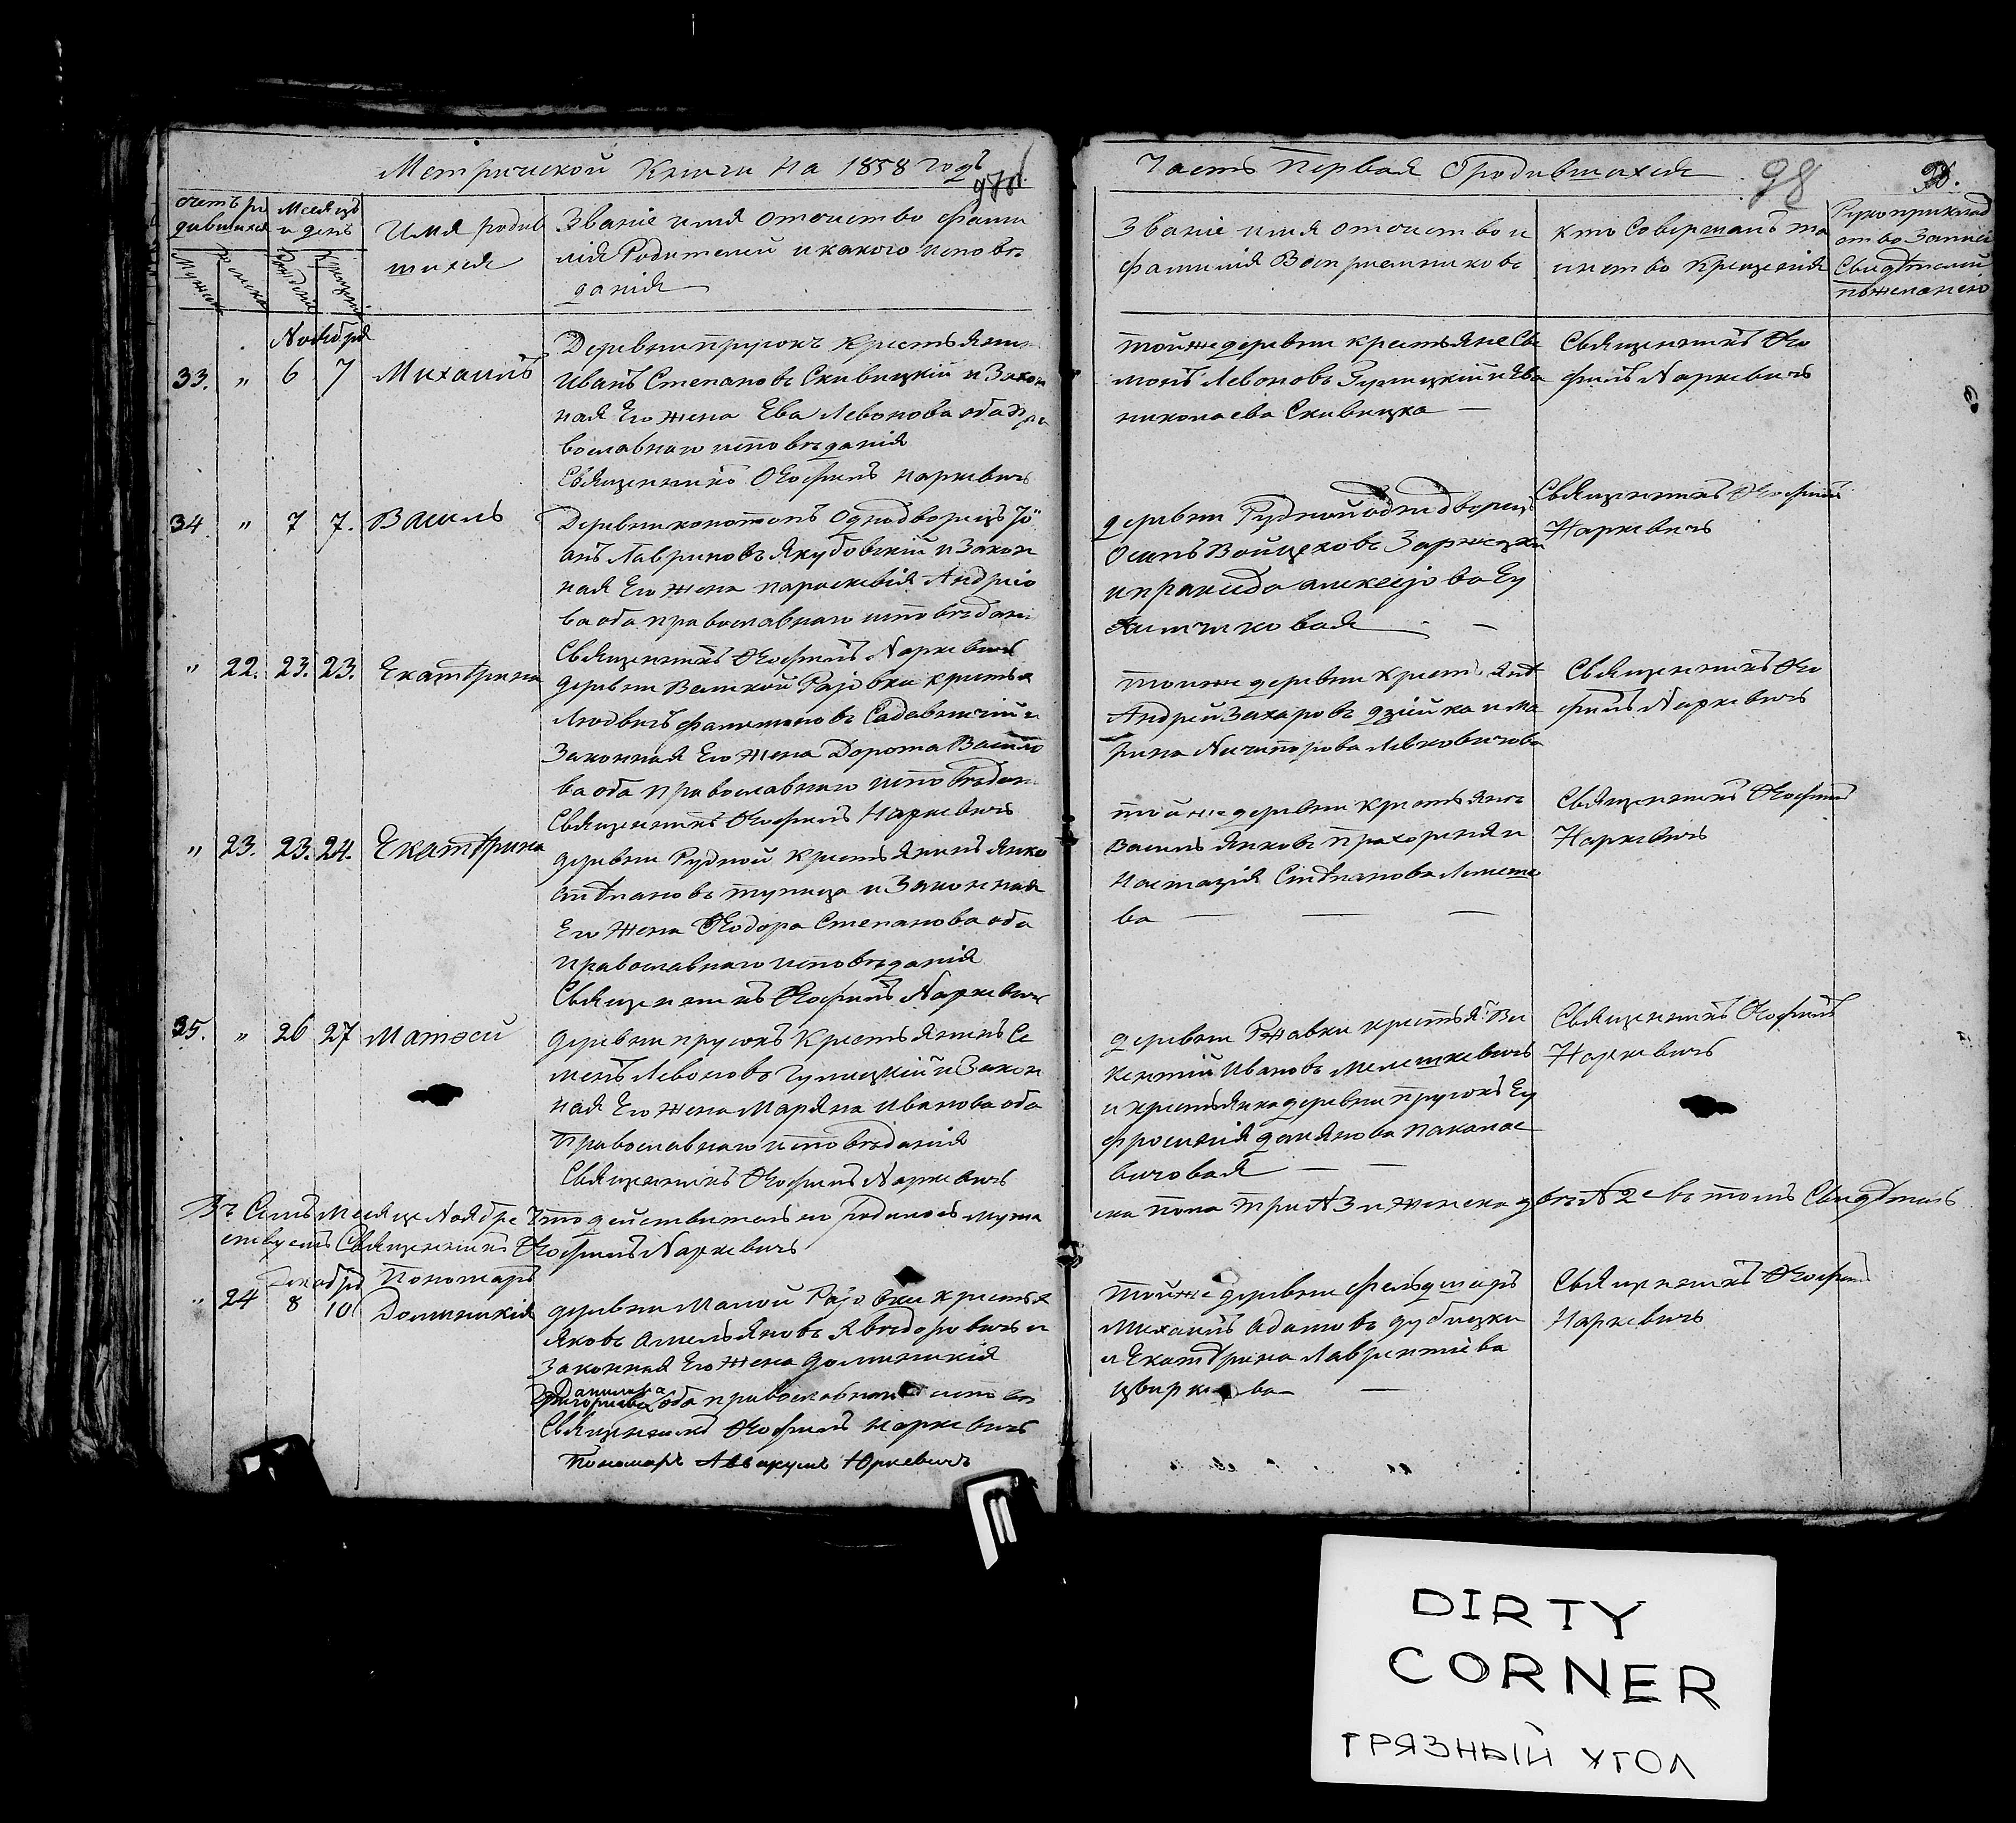 Метрической Книги на 1858 годъ
Часть Первая О родившихся
98
счетъ ро
дившихся
Месяцъ
и день
Имя родив
шихся
Званіе имя отечество фами
лія Родителей и какого испове
данія
Званіе имя отечество и
фамилія Воспріемниковъ
кто Совершалъ та
инство Крещенія
Рукоприклад
ство Записи
Свидѣтелей
по желанію
Ноября
33. " 6 7 Михаилъ
Деревни прусокъ Крестьянин
Иванъ Степановъ Скивицкій и Закон
ная Его жена Ева Левонова оба пра
вославнаго исповѣданія
Священникъ Ѳеофилъ Наркевичъ
тойже деревни крестьяне Се
менъ Левоновъ Гулицкій и Ева
николаева Скивицка —
Священникъ Ѳео
филъ Наркевичъ
34 " 7 7. Василь
Деревни конотопъ Однодворецъ Іо
анъ Лавриновъ Якубовскій и Закон
ная Его жена параскевія Андрѣо
ва оба православнаго исповѣдані
Священникъ Ѳеофилъ Наркевичъ
деревни Рудной однодворецъ
Осипъ Войцеховъ
и
Священникъ Ѳеофилъ
Наркевичъ
" 22. 23. 23. Екатѣрина
деревни Великой Раіовки крестья
Людвигъ
Законная Его жена Дорота Васило
ва оба православнаго исповѣдан
Священникъ Ѳеофилъ Наркевичъ
тойже деревни Крестьянѣ
Андрей Захаровъ дзійка и ма
рина Ничипорова Левковичова
Священникъ Ѳео
филъ Наркевичъ
" 23. 23. 24. Екатѣрина
деревни Рудной Крестьянинъ Янко
стѣпановъ тупица и Законная
Его жена Ѳеодора Степанова оба
православнаго исповѣданія
Священникъ Ѳеофилъ Наркевичъ
тойже деревни Крестьянѣ
Василь Янковъ прахореня и
Настазія Стѣпанова
ва — — —
Священникъ Ѳеофилъ
Наркевичъ
35. " 26 27 Матэей
деревни прусокъ Крестьянинъ Се
менъ Левоновъ Гулицкій и Закон
ная Его жена Марьяна Иванова оба
Православнаго исповѣданія
Священникъ Ѳеофилъ Наркевичъ
деревни Ржавки крестья Ви
кентій Ивановъ Мелешкевичъ
и крестьянка деревни прусокъ Еу
фросинія
вичовая — —
Священникъ Ѳеофилъ
Наркевичъ
Въ Семъ месяце Ноябре что действительно Родилось мужа
ска пола три №3 и женска двѣ №2 е въ томъ Свидѣтель
ствуетъ Священникъ Ѳеофилъ Наркевичъ
Декабря
Пономарь
" 24 8 10 Доминикія
деревни Малой Раіовки крестья
Яковъ Амельяновъ Явѣдоровичъ и
Законная Его жена Доминикія
Данилова
Григорьева оба православнаго испов
Священникъ Ѳеофилъ Наркевичъ
Пономарь Аввакумъ Юркевичъ
тойже деревни фельдшаръ
Михаилъ Адамовъ дубицки
и Екатѣрина Лаврентіева
Священникъ Ѳеофил
Наркевичъ
DIRTY
CORNER
ГРЯЗНЫЙ УГОЛ